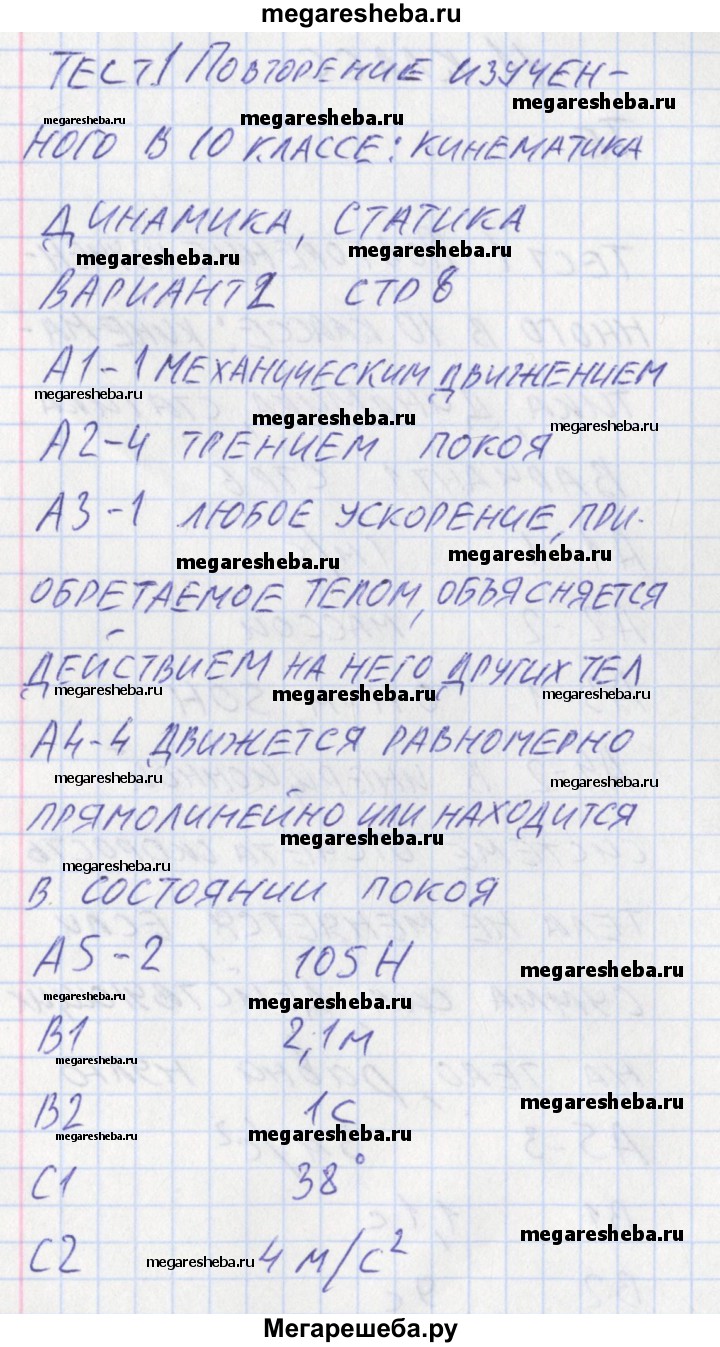 megaresheba.ru
ТЕСТ1 ПОВТОРЕНИЕ ИЗУЧЕН-
megaresheba.ru
megaresheba.ru megaresheba.ru
НОГО В 10 КЛАССЕ: КИНЕМАТИКА
ДИНАМИКА, СТАТИКА
megaresheba.ru megaresheba.ru
ВАРИАНТ2 СТР 8
А1-1 МЕХАНИЧЕСКИМ ДВИЖЕНИЕМ
megaresheba.ru megaresheba.ru megaresheba.ru
А2-4 ТРЕНИЕМ ПОКОЯ
А3-1 ЛЮБОЕ УСКОРЕНИЕ, ПРИ-
megaresheba.ru megaresheba.ru
ОБРЕТАЕМОЕ ТЕЛОМ, ОБЪЯСНЯЕТСЯ
ДЕЙСТВИЕМ НА НЕГО ДРУГИХ ТЕЛ
megaresheba.ru megaresheba.ru megaresheba.ru
А4-4 ДВИЖЕТСЯ РАВНОМЕРНО
megaresheba.ru megaresheba.ru
ПРЯМОЛИНЕЙНО ИЛИ НАХОДИТСЯ
megaresheba.ru
megaresheba.ru
В СОСТОЯНИИ ПОКОЯ
А5-2 105 Н
megaresheba.ru
megaresheba.ru megaresheba.ru
В1 2,1 м
megaresheba.ru
В2 1 с
megaresheba.ru
megaresheba.ru megaresheba.ru
С1 38°
megaresheba.ru
С2 4 м/с²
megaresheba.ru
Мегарешеба.ру